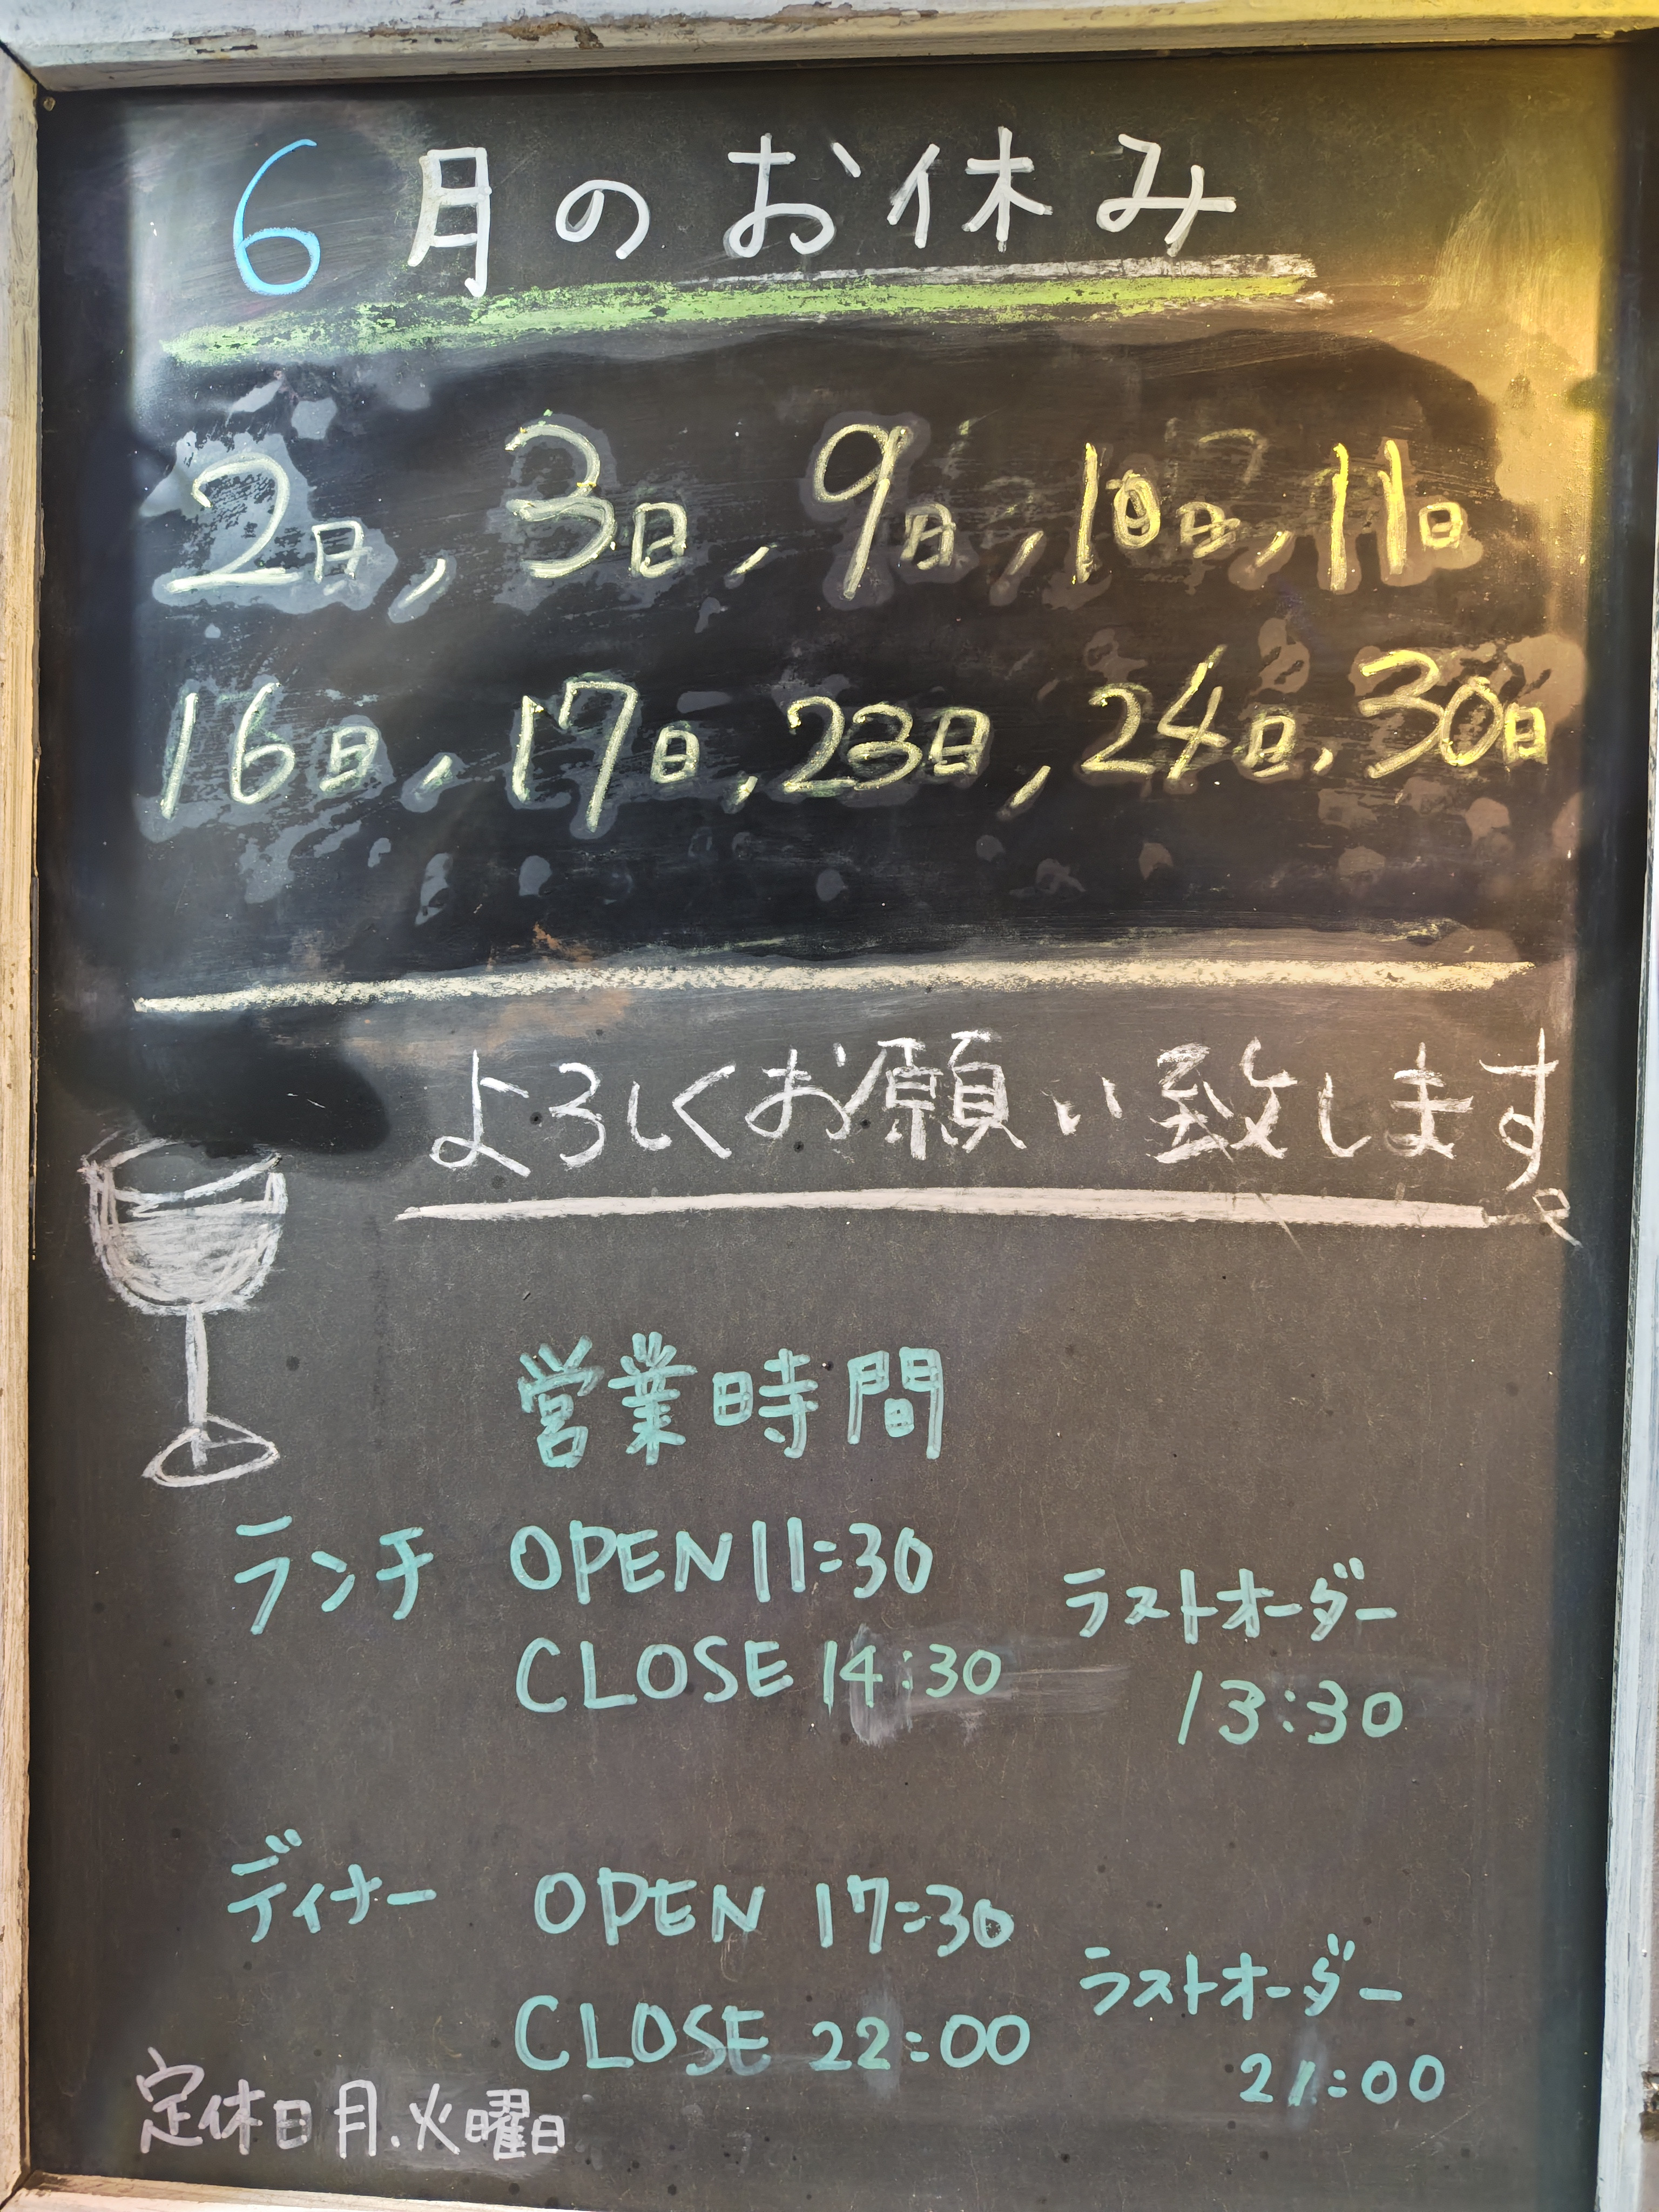 6月のお休み
2日, 3日, 9日, 10日, 11日
16日, 17日, 23日, 24日, 30日
よろしくお願い致します。
営業時間
ランチ OPEN 11:30
CLOSE 14:30
ラストオーダー
13:30
ディナー OPEN 17:30
CLOSE 22:00
ラストオーダー
21:00
定休日 月.火曜日